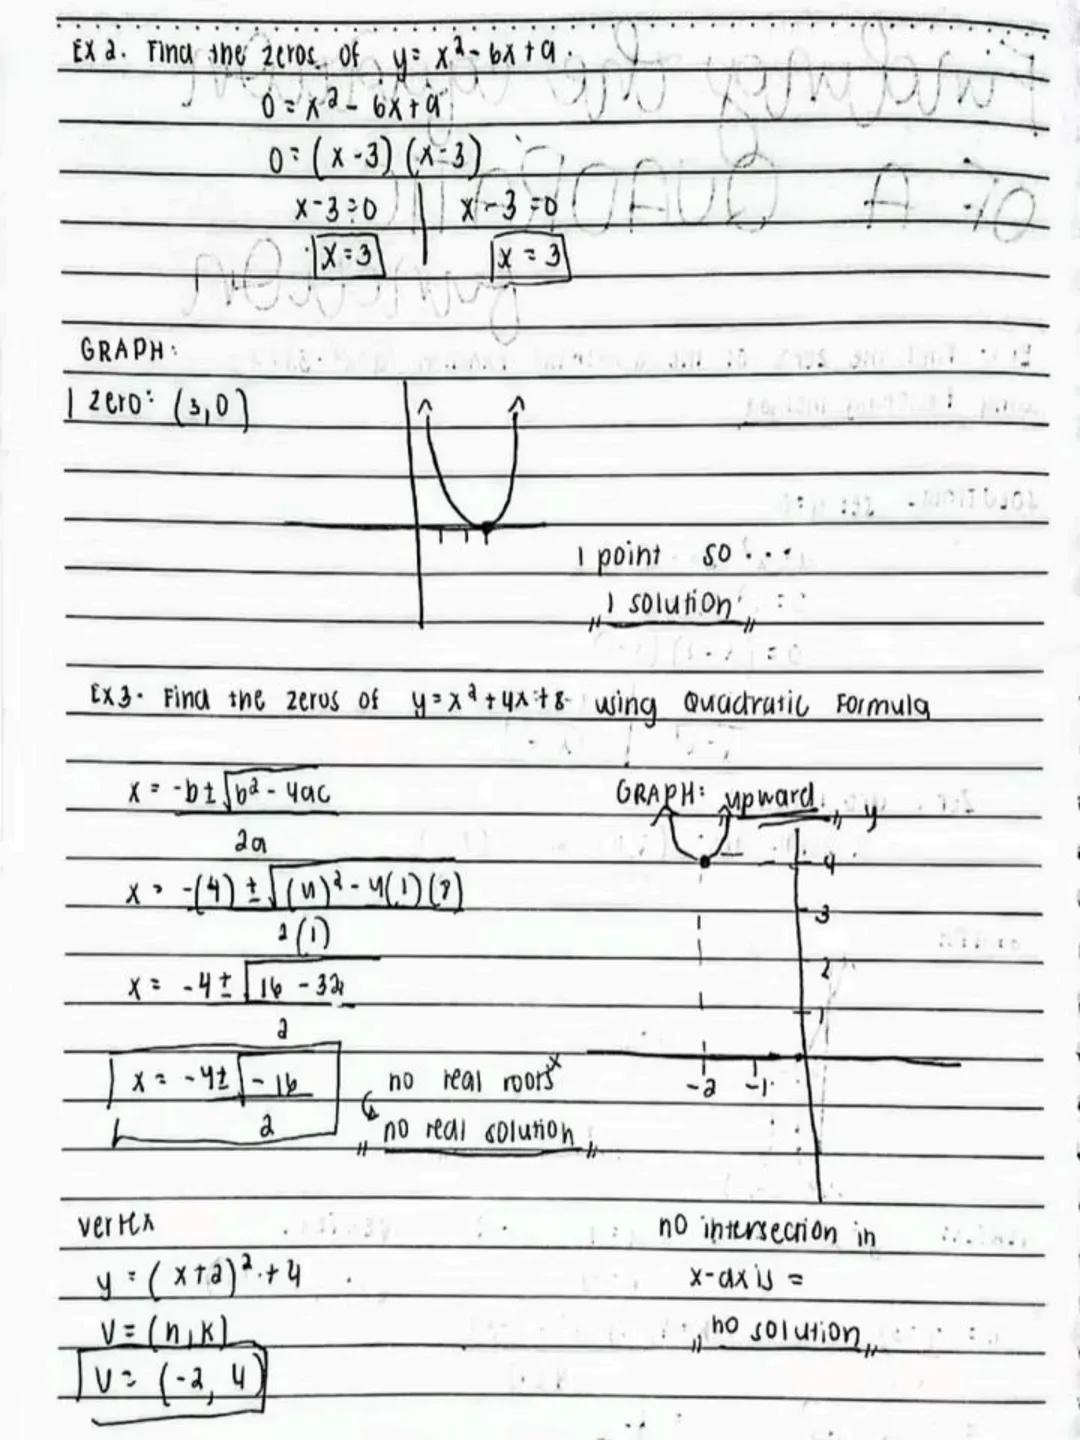 Ex 2. Find the zeros of y = x² - 6x + 9.
0 = x² - 6x + 9
0 = (x - 3) (x - 3)
x - 3 = 0 | x - 3 = 0
x = 3 x = 3
GRAPH:
1 zero: (3,0)
1 point so...
1 solution
Ex 3. Find the zeros of y = x² + 4x + 8 using Quadratic Formula
x = -b ± √b² - 4ac
2a
x = -(4) ± √(4)² - 4(1)(8)
2(1)
x = -4 ± √16 - 32
2
x = -4 ± √-16
2
no real roots
no real solution
GRAPH: upward
y
4
3
2
1
x
-2 -1
vertex
y = (x+2)² + 4
V = (h, k)
V = (-2, 4)
no intersection in
x-axis =
no solution